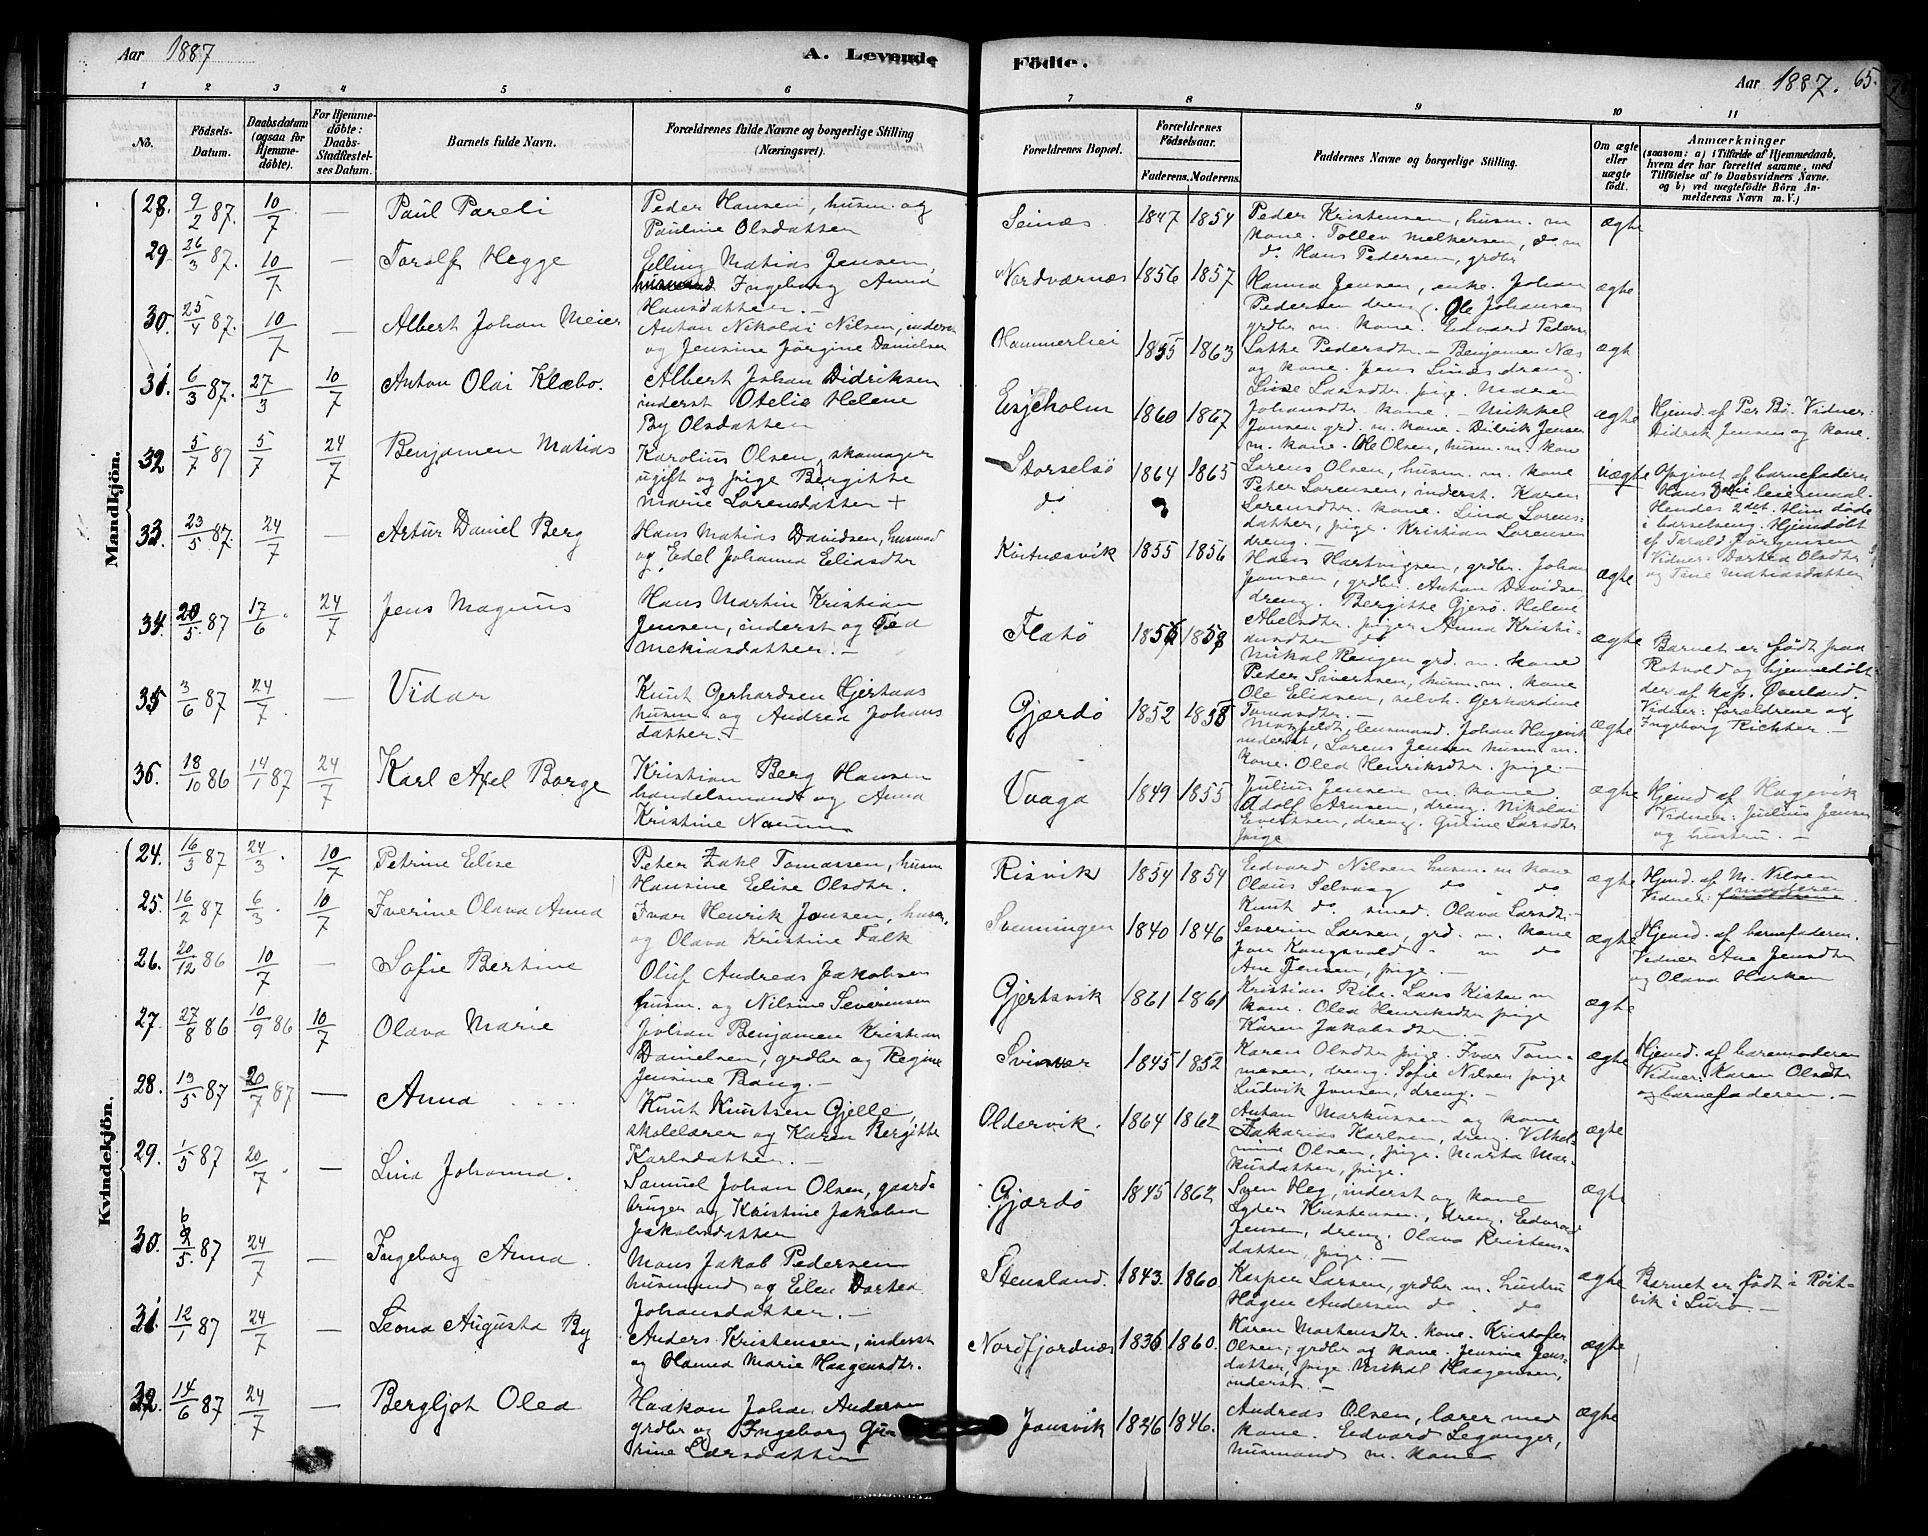 Aar 1887
A. Levende Födte.
Aar 1887. 65.
1 2 3 4 5 6 7 8 9 10 11
No.
Födsels-Datum.
Daabsdatum (ogsaa for Hjemmedöbte).
For Hjemmedöbte: Daabs-Stadfæstelses Datum.
Barnets fulde Navn.
Forældrenes fulde Navne og borgerlige Stilling (Næringsvei).
Forældrenes Bopæl.
Forældrenes Födselsaar.
Faderens. Moderens.
Faddernes Navne og borgerlige Stilling.
Om ægte eller uægte födt.
Anmærkninger
(saasom: a) i Tilfælde af Hjemmedaab, hvem der har forrettet samme, med Tilföielse af to Daabsvidners Navne. og b) ved uægtefödte Börn Anmelderens Navn m. V.)
Mandkjön.
28. 9/2 87. 10/7 — Paul Pareli
Peder Hansen, husm. og
Pauline Olsdatter
Seinæs 1847 1854
Peder Kristensen, husm. m
kone. Tollev Melkersen, do m
do. Hans Pedersen, grdbr
ægte
29. 26/3 87. 10/7 — Toralf Hegge
Elling Matias Jensen,
husmand Ingeborg Anna
Hansdatter. —
Nordværnæs 1856 1857
Hanna Jensen, enke. Johan
Pedersen dreng. Ole Johansen
grdbr m. kone. Edvard Peders
ægte
30. 25/4 87. 10/7 — Albert Johan Meier
Anton Nikolai Nilsen, inderst
og Jensine Jörgine Danielsen
Hammerliei 1855 1863
Pedersdtr. — Benjamin Næs
og kone. Jens dreng.
ægt
31. 6/3 87. 27/3 10/7 Anton Olai Klæbo.
Albert Johan Didriksen
inderst Otelie Helene
By Olsdatter
Esjeholm 1860 1867
Johansdtr kone. — Mikkel
Jonsen grd. m. kone. Didrik Jensen
m. kone. Ole Olsen, husm. m. kon
ægte
Hjemd. af Per Bö. Vidner:
Didrik Jensen og kone.
32 5/7 87 5/7 24/7 Benjamen Matias
Karolius Olsen, skomager
ugift og pige Bergitte
Marie Lorensdatter +
Storselsö 1864 1865
do
Lorens Olsen, husm. m. kone
Peter Lorensen, inderst. Karen
Lorensdtr. kone. Lina Lorens-
datter, pige. Kristian Lorensen
dreng. —
uægte
Opgivet af barnefaderen
Hans 3die leiermaal.
Hendes 2det. Hun döde
i barselseng. Hjemdöbt
af Torald Jörgensen
Vidner: Dorthea Olsdtr
og Tine Matiasdatter
33. 23/5 87. 24/7 — Artur Daniel Berg
Hans Matias Davidsen, husmd
og Edel Johanna Eliasdtr
Kvitnæsvik 1855 1856
Hans Hartvigsen, grdbr. Johan
Jensen, grdbr. Anton Davidsen
dreng. Bergitte Gjesö. Helene
ægte
34. 20/5 87 17/6 24/7 Jens Magnus
Hans Martin Kristian
Jensen, inderst og
Mekiasdatter. —
Flatö 1858
Mikal Ringen grd. m. kone
Peder Sivertsen, husm. m. kone
ægte
Barnet er födt paa
Rotvold og hjemmedöbt
der af kap. Överland.
Vidner: forældrene og
Ingeborg Richter. —
35 3/6 87 24/7 — Vidar
Knut Gerhardsen Hjertaas
husm. og Andrea Johans
datter. +
Gjærdö 1852 1855
Ole Eliasen, selvh. Gerhardine
Tomasdtr. —
lensmand. Johan Hagevik
inderst, Lorens Jensen husm m.
kone. Olea Henriksdtr. pige. —
ægte
36. 18/10 86 14/1 87 24/7 Karl Axel Borge
Kristian Berg Hansen
handelsmand og Anna
Kristine Naum
Vaaga 1849 1855
Julius Jensen m. kone.
Adolf Arnsen, dreng. Nikolai
Evertsen, dreng. Gurine Larsdtr
pige
ægte
Hjemd af Hagevik
Vidner: Julius Jensen
og hustru. —
Kvindekjön.
24. 16/3 87 24/3. 10/7 Petrine Elise
Peter Zakl Tomassen, husm
Hansine Elise Olsdtr.
Risvik 1854 1854
Edvard Nilsen husm. m kone
Olaus Selvaag do do
Knut do. smed. Olava Larsdtr. —
ægte
Hjemd. af M. Nilsen
Vidner: forældrene
25. 16/2 87 6/3. 10/7 Iverine Olava Anna
Ivar Henrik Jonsen, husm,
og Olava Kristine Falk
Svenningen 1840 1846
Severin Larsen, grd. m. kone
Jon Kongsvold - m do
Ane Jensen, pige. —
ægte
Hjemd. af barnefaderen.
Vidner Ane Jensdtr
og Olava Harken
26. 20/12 86 10/7 — Sofie Bertine
Oluf Andreas Jakobsen
husm. og Nilsine Severinsen
Gjertsvik 1861 1861
Kristian Ribe. Lars Kisten m
kone. Olea Henriksdtr pige
Karen Jakobsdtr. —
ægte
27. 27/8 86 10/9 86 10/7 Olava Marie
Johan Benjamen Kristian
Danielsen, grdbr og Regine
Jensine Bang. —
Svinvær 1845 1852
Karen Olsdtr pige. Ivar Tom-
masen, dreng. Sofie Nilsen pige
Ludvik Jonsen, dreng. —
ægte
Hjemd. af barnemoderen
Vidner: Karen Olsdtr
og barnefaderen. —
28. 13/5 87 20/7 87 — Anna
Knut Knutsen Gjelle,
skolelærer og Karen Bergitte
Karlsdatter. —
Oldervik. 1864 1862
Anton Markussen og kone
Zakarias Karlsen, dreng. Vilhel-
mine Olsen, pige. Marta Mar-
kusdatter, pige.
ægte
29. 1/5 87 20/7. — Lina Johanna.
Samuel Johan Olsen, gaard-
bruger og Kristine Jakobea
Jakobsdatter
Gjærdö 1845 1862
Sven Heg, inderst og kone
Peder Kristensen, dreng. Edvard
Jensen, dreng. Olava Kristens-
datter, pige. —
ægte
30. 6/5. 87 24/7 — Ingeborg Anna.
Mons Jakob Pedersen
husmand og Elen Dortea
Johansdatter. —
Stensland. 1843. 1860
Kasper Larsen, grdbr m. hustru
Hagen Andersen do. do
ægte
Barnet er födt i Röit-
vik i Lurö —
31. 12/1 87 24/7 — Leona Augusta By
Anders Kristensen, inderst
og Hanna Marie Haagensdtr.
Nordfjordnæs 1836 1860.
Karen Mortensdtr. kone. Kristofer
Olsen, grdbr og kone. Jensine Jens-
datter, pige. Mikal Haagensen,
inderst. —
ægte
32. 14/6 87 24/7 — Bergljot Olea
Haakon Johan Andersen
grdbr og Ingeborg Gu-
rine Larsdatter
Jonsvik 1846.
Andreas Olsen, lærer med
kone. Edvard Leganger,
husmand m. kone
ægte